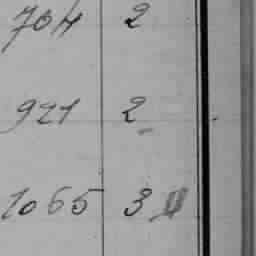 704 2
921 2
1065 3